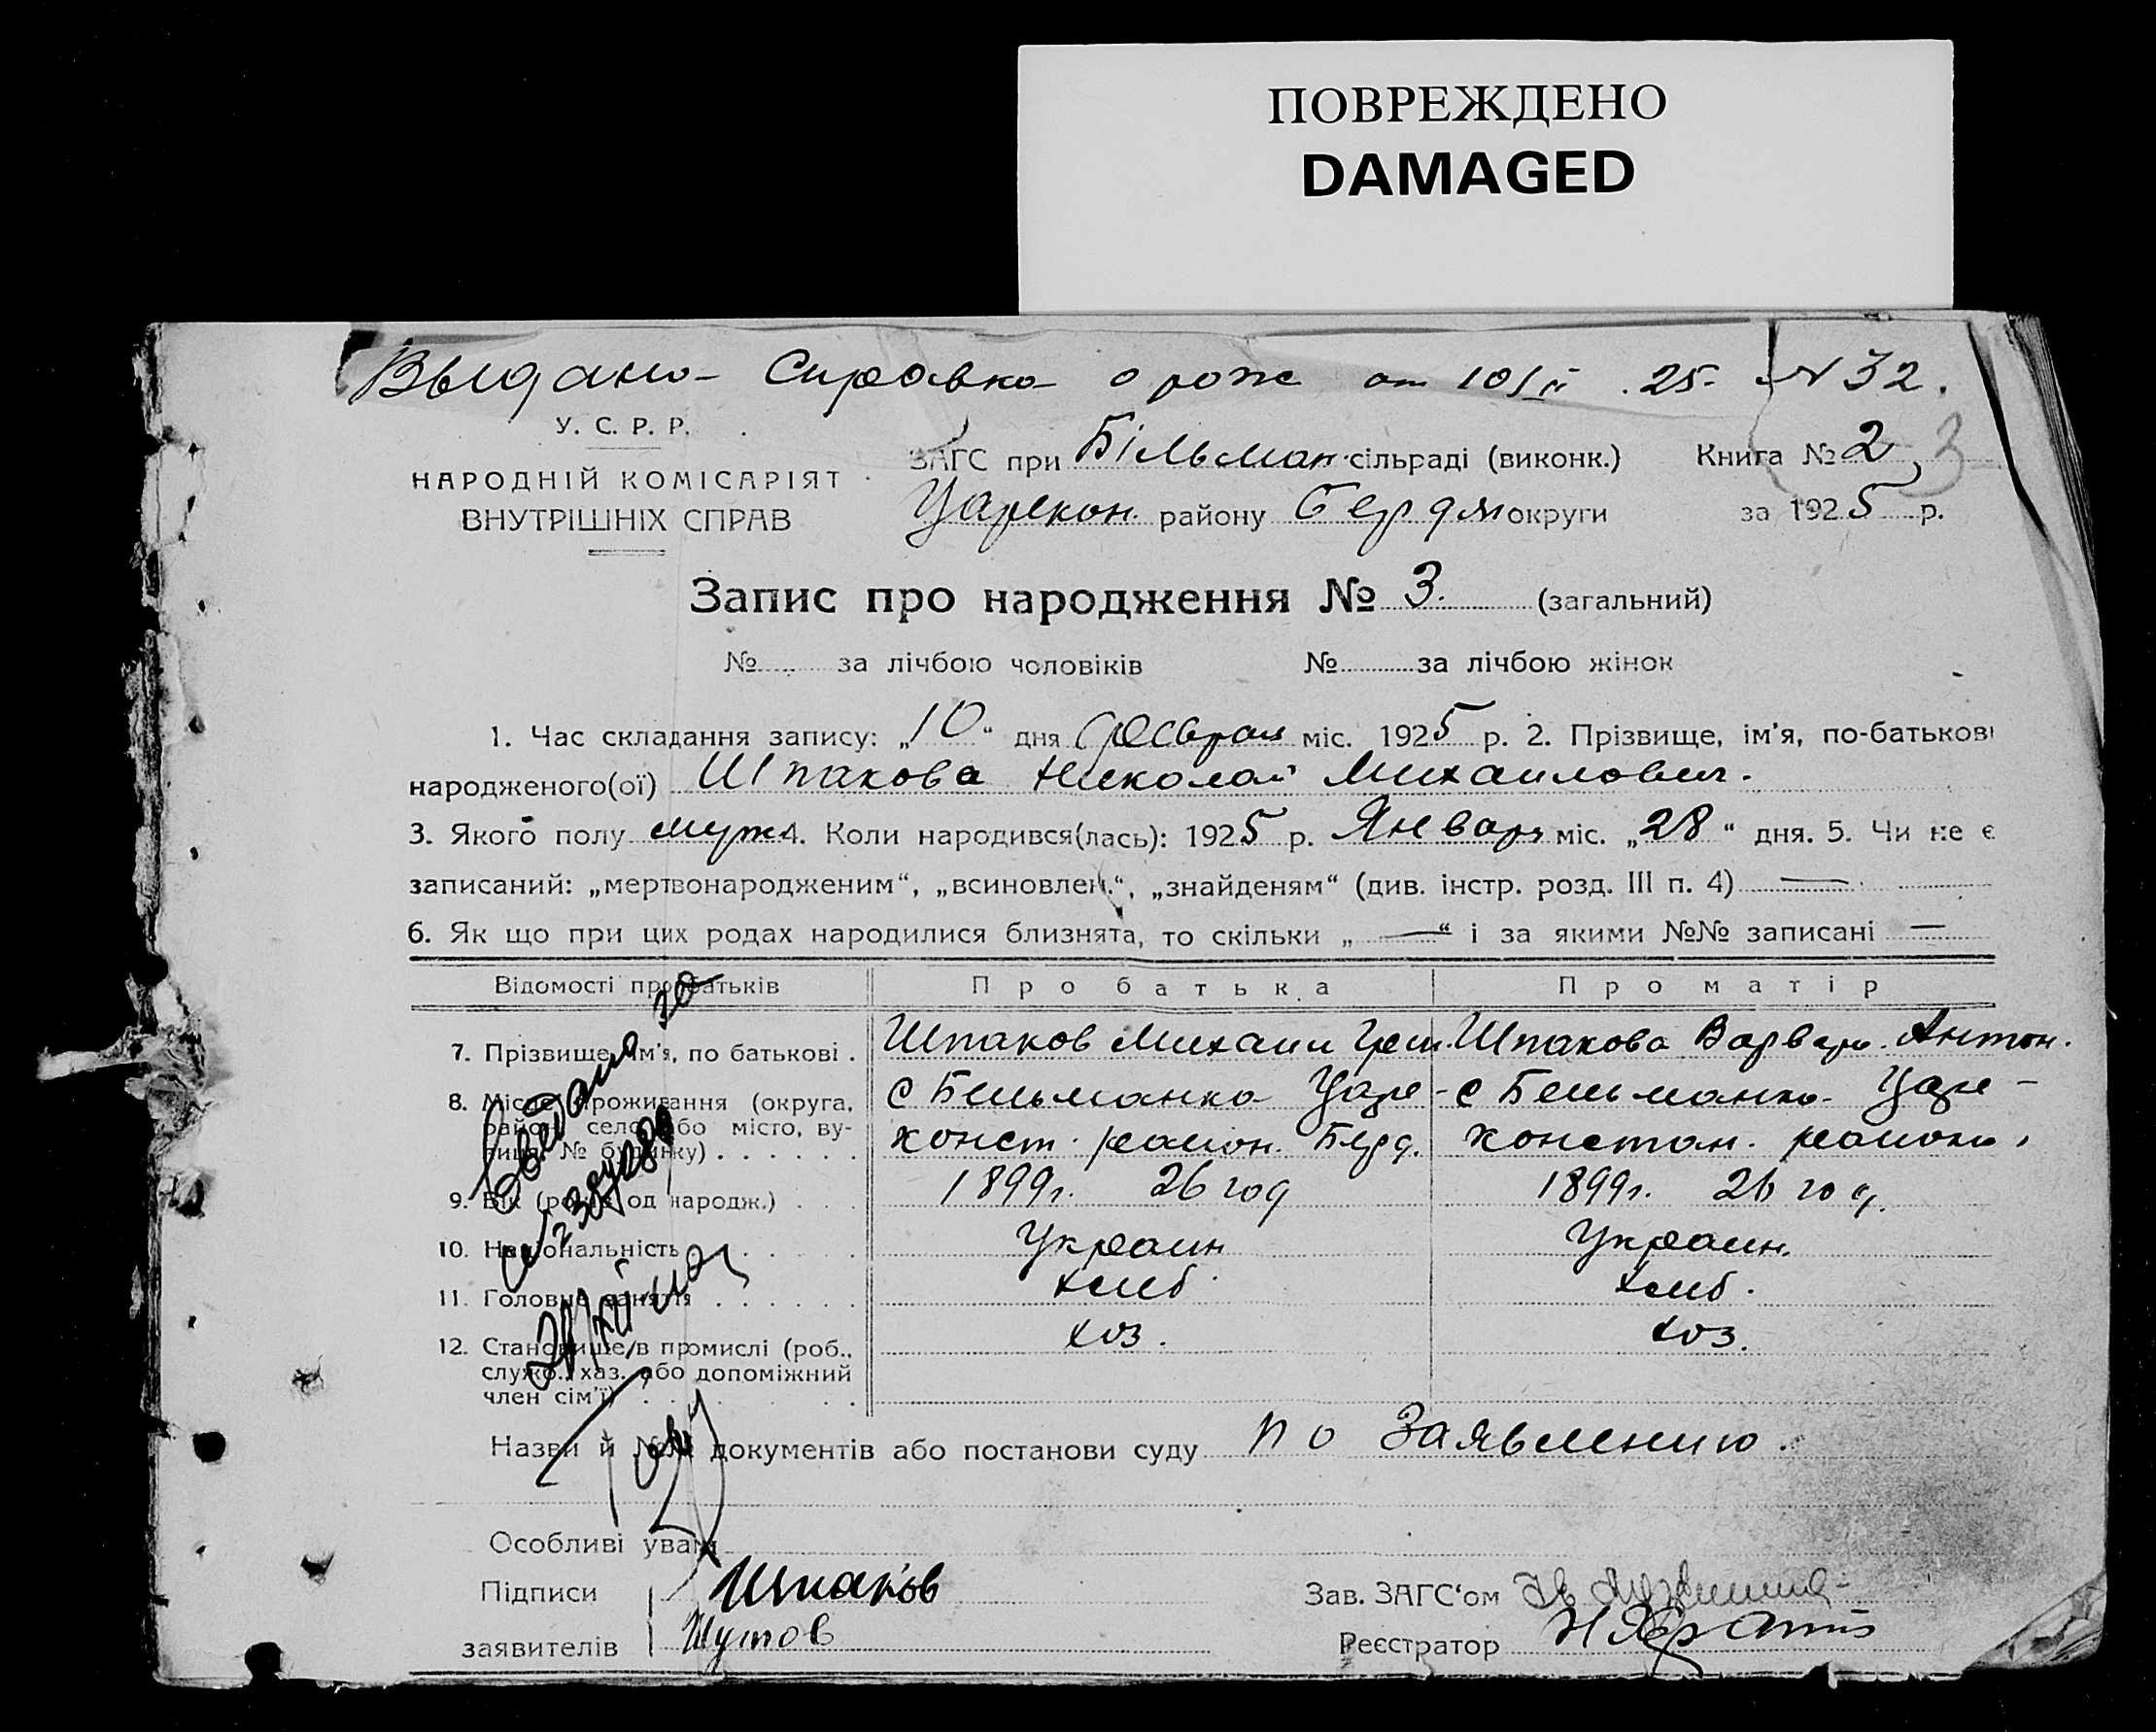 ПОВРЕЖДЕНО
DAMAGED
Выдано Справка о рож от 10/II 25 N 32.
У. С. Р. Р.
НАРОДНІЙ КОМІСАРІЯТ
ВНУТРІШНІХ СПРАВ
ЗАГС при Більман сільраді (виконк.) Книга № 2, 3
Царекон. району Бердян округи за 1925 р.
Запис про народження № 3. (загальний)
№ за лічбою чоловіків № за лічбою жінок
1. Час складання запису: „10“ дня Февраля міс. 1925 р. 2. Прізвище, ім'я, по-батькові
народженого(ої) Шпакова Николай Михайлович.
3. Якого полу муж 4. Коли народився(лась): 1925 р. Января міс. „28“ дня. 5. Чи не є
записаний: „мертвонародженим“, „всиновлен.“, „знайденям“ (див. інстр. розд. III п. 4) —
6. Як що при цих родах народилися близнята, то скільки „—“ і за якими №№ записані —
Відомості про батьків Про батька Про матір
7. Прізвище, ім'я, по батькові . Шпаков Михаил Григ. Шпакова Варвара Антон.
8. Місце проживання (округа, с Бельманка Царе- с Бельманка Царе-
район, село або місто, ву-
лиця, № будинку) . . . . . . конст. район. Берд. констан. района,
9. Вік (років од народж.) . . . 1899г. 26 год 1899г. 26 год.
10. Національність . . . . . Украин Украин.
11. Головне заняття . . . . . . хлиб. хлиб.
12. Становище в промислі (роб., хоз. хоз.
служб., хаз. або допоміжний
член сім'ї) . . . . . . .
Назви й №№ документів або постанови суду по Заявлению.
Особливі уваги
Підписи Шпаков Зав. ЗАГС'ом
заявителів Шутов Реєстратор